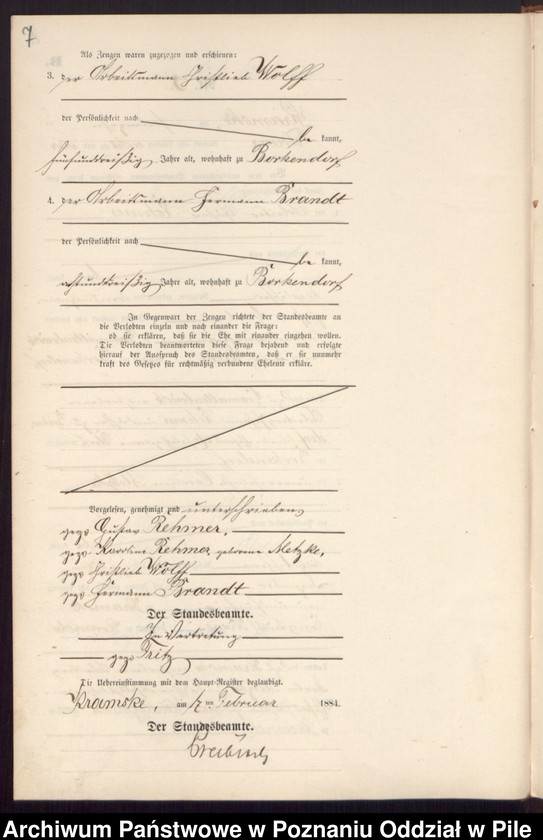 7
Als Zeugen waren zugezogen und erschienen:
3. der Arbeitsmann Christlieb Wolff
der Persönlichkeit nach
be kannt,
fünfunddreißig Jahre alt, wohnhaft zu Borkendorf
4. der Arbeitsmann Hermann Brandt
der Persönlichkeit nach
be kannt,
achtunddreißig Jahre alt, wohnhaft zu Borkendorf
In Gegenwart der Zeugen richtete der Standesbeamte an
die Verlobten einzeln und nach einander die Frage:
ob sie erklären, daß sie die Ehe mit einander eingehen wollen.
Die Verlobten beantworteten diese Frage bejahend und erfolgte
hierauf der Ausspruch des Standesbeamten, daß er sie nunmehr
kraft des Gesetzes für rechtmäßig verbundene Eheleute erkläre.
Vorgelesen, genehmigt und unterschrieben
gez. Gustav Rehmer,
gez. Karoline Rehmer geborene Metzke,
gez. Christlieb Wolff
gez. Hermann Brandt
Der Standesbeamte.
In Vertretung
gez. Fritz
Die Uebereinstimmung mit dem Haupt-Register beglaubigt.
Kramske, am ten Februar 1884.
Der Standesbeamte.
Archiwum Państwowe w Poznaniu Oddział w Pile